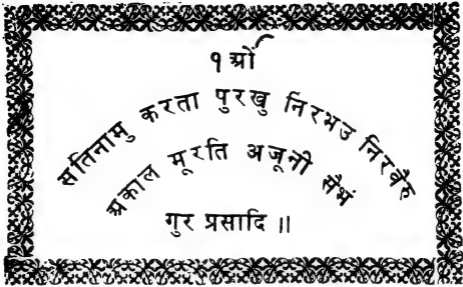 १ओं
सतिनामु करता पुरखु निरभउ निरवैरु
अकाल मूरति अजूनी सैभं
गुर प्रसादि ॥